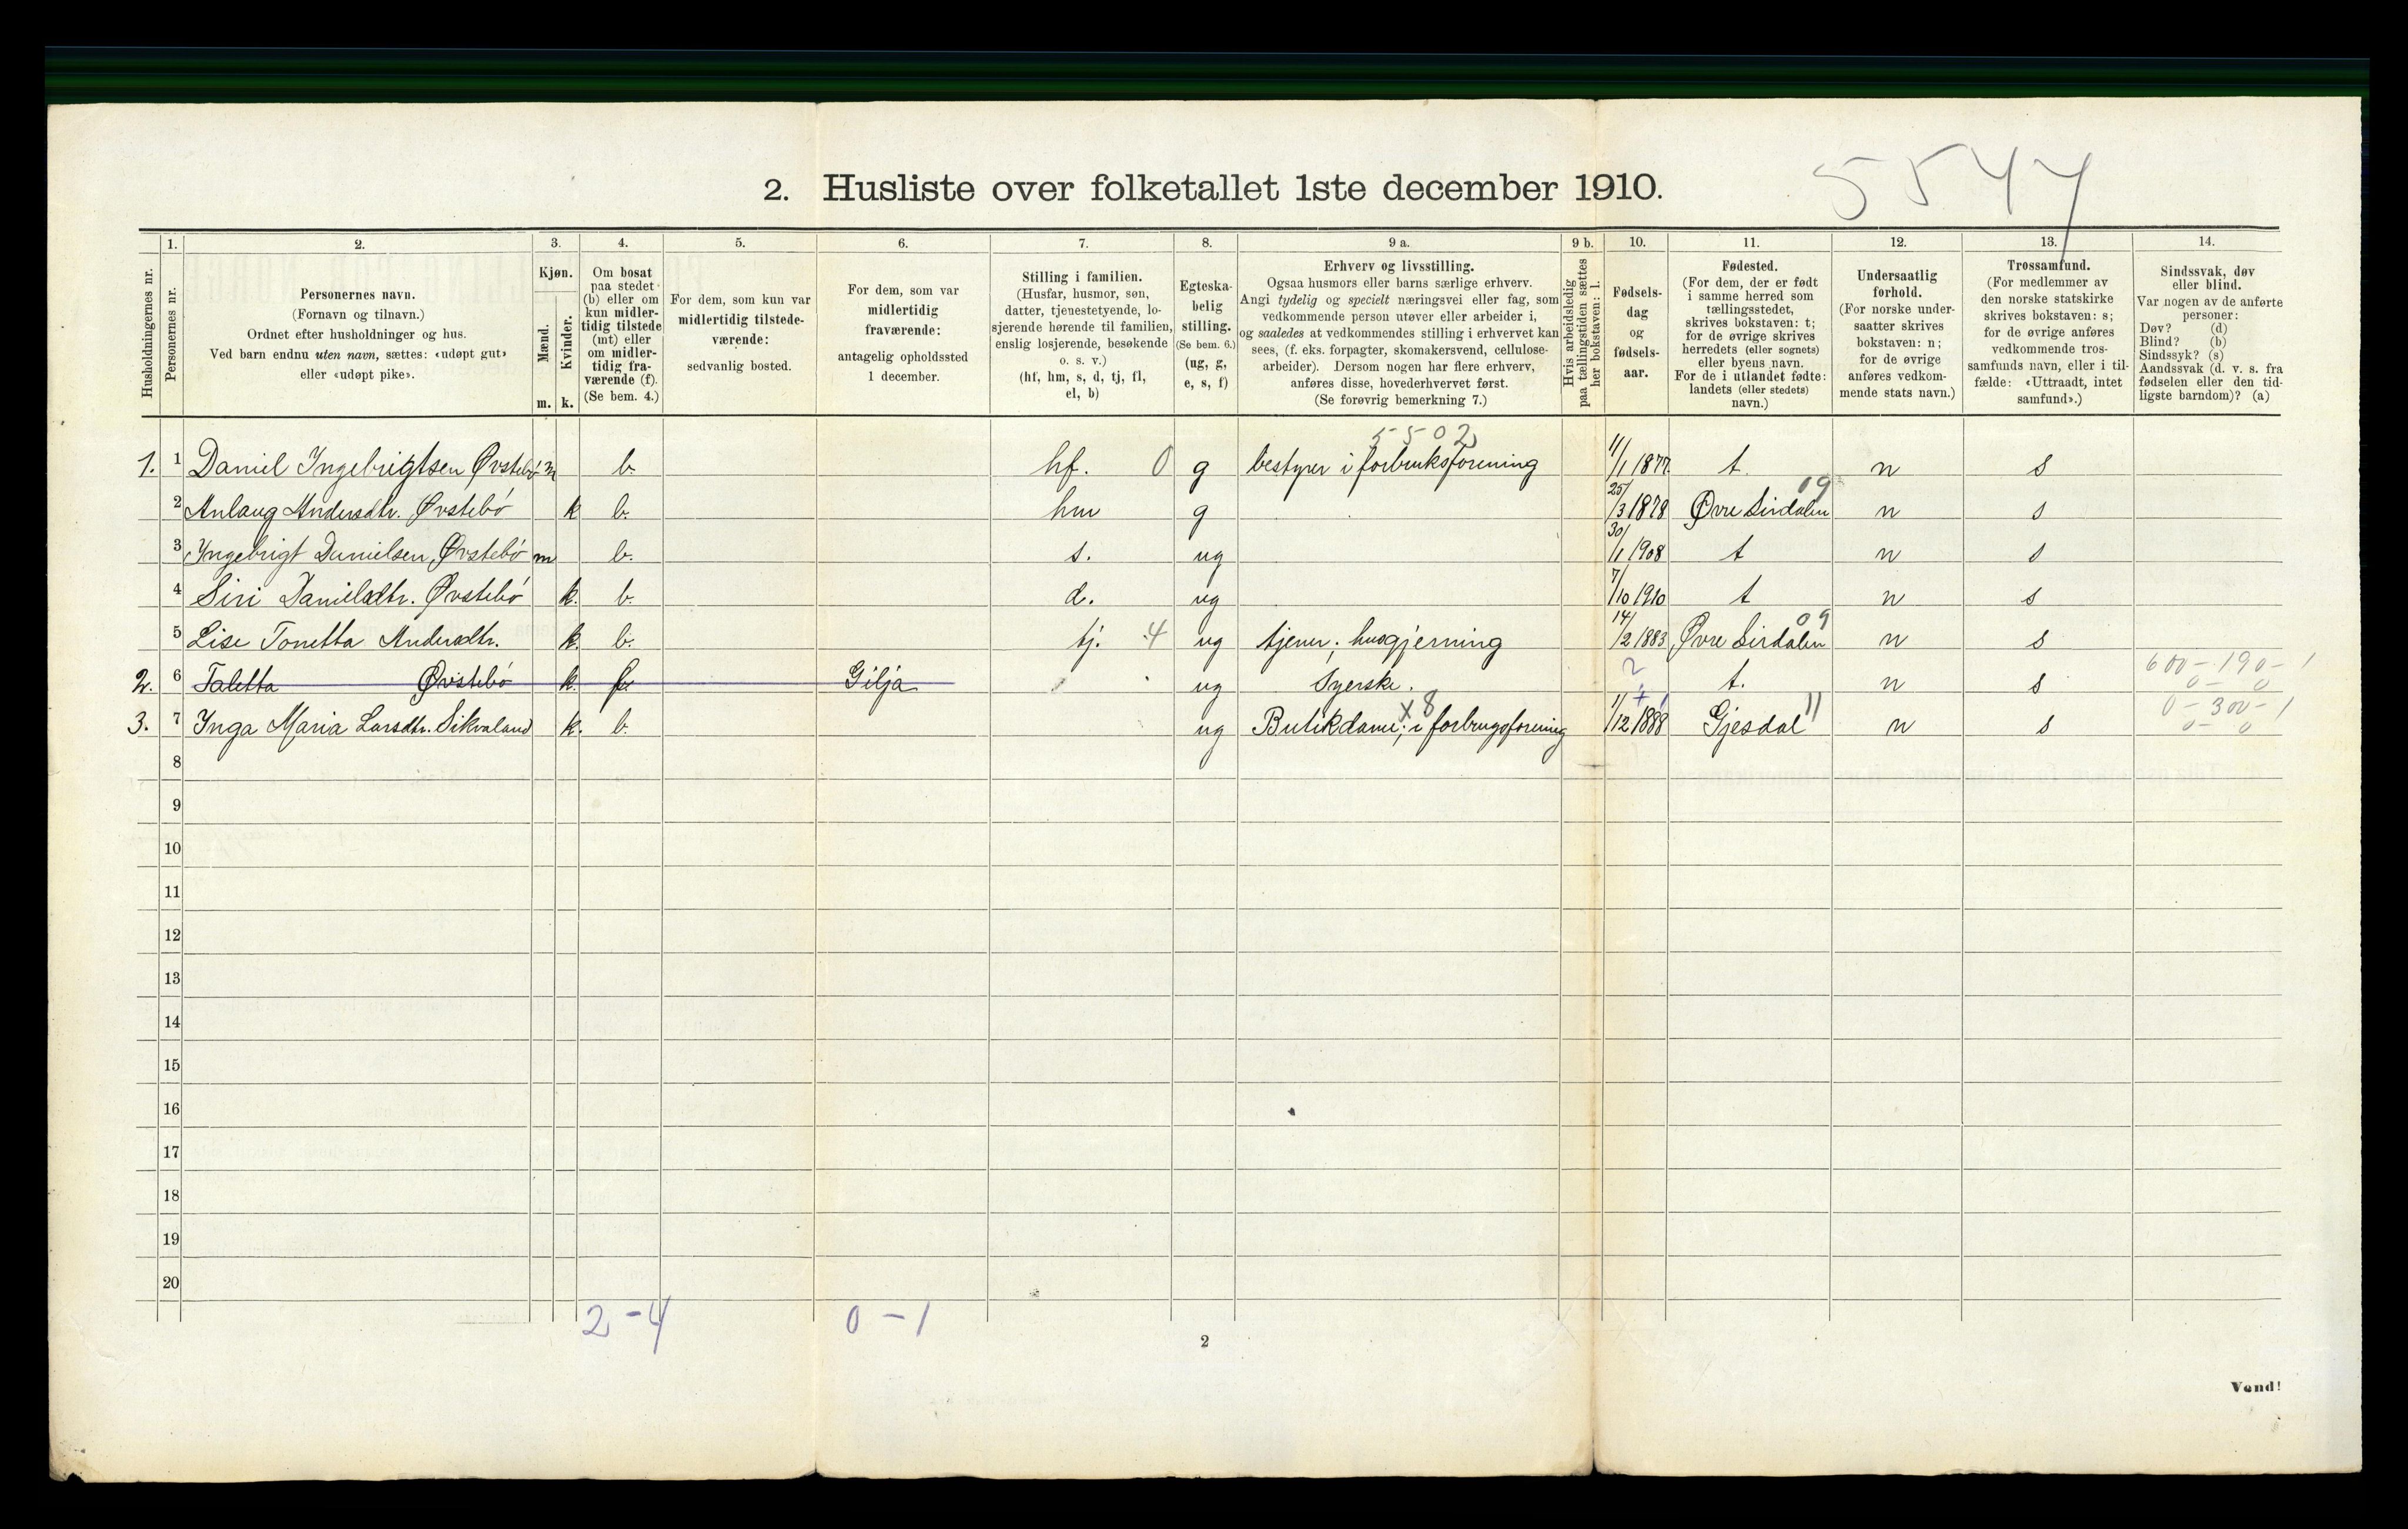 5544
2. Husliste over folketallet 1ste december 1910.
Husholdningernes nr.
1. Personernes nr.
2. Personernes navn.
(Fornavn og tilnavn.)
Ordnet efter husholdninger og hus.
Ved barn endnu uten navn, sættes: «udøpt gut»
eller «udøpt pike».
3. Kjøn.
Mænd. Kvinder.
m. k.
4. Om bosat
paa stedet
(b) eller om
kun midler-
tidig tilstede
(mt) eller
om midler-
tidig fra-
værende (f).
(Se bem. 4.)
5. For dem, som kun var
midlertidig tilstede-
værende:
sedvanlig bosted.
6. For dem, som var
midlertidig
fraværende:
antagelig opholdssted
1 december.
7. Stilling i familien.
(Husfar, husmor, søn,
datter, tjenestetyende, lo-
sjerende hørende til familien,
enslig losjerende, besøkende
o. s. v.)
(hf, hm, s, d, tj, fl,
el, b)
8. Egteska-
belig
stilling.
(Se bem. 6.)
(ug, g,
e, s, f)
9 a. Erhverv og livsstilling.
Ogsaa husmors eller barns særlige erhverv.
Angi tydelig og specielt næringsvei eller fag, som
vedkommende person utøver eller arbeider i,
og saaledes at vedkommendes stilling i erhvervet kan
sees, (f. eks. forpagter, skomakersvend, cellulose-
arbeider). Dersom nogen har flere erhverv,
anføres disse, hovederhvervet først.
(Se forøvrig bemerkning 7.)
9 b. Hvis arbeidsledig
paa tællingstiden sættes
her bokstaven: l.
10. Fødsels-
dag
og
fødsels-
aar.
11. Fødested.
(For dem, der er født
i samme herred som
tællingsstedet,
skrives bokstaven: t;
for de øvrige skrives
herredets (eller sognets)
eller byens navn.
For de i utlandet fødte:
landets (eller stedets)
navn.)
12. Undersaatlig
forhold.
(For norske under-
saatter skrives
bokstaven: n;
for de øvrige
anføres vedkom-
mende stats navn.)
13. Trossamfund.
(For medlemmer av
den norske statskirke
skrives bokstaven: s;
for de øvrige anføres
vedkommende tros-
samfunds navn, eller i til-
fælde: «Uttraadt, intet
samfund».)
14. Sindssvak, døv
eller blind.
Var nogen av de anførte
personer:
Døv? (d)
Blind? (b)
Sindssyk? (s)
Aandssvak (d. v. s. fra
fødselen eller den tid-
ligste barndom)? (a)
5502
1. 1 Daniel Ingebrigtsen Øvstebø m b. hf. 0 g bestyrer i forbruksforening 11/1 1877 t. n s
09
2 Anlaug Andersdtr. Øvstebö k b. hm g 25/3 1878 Øvre Sirdalen n s
3 Ingebrigt Danielsen Øvstebö m b. s. ug 30/1 1908 t n s
4 Siri Danielsdtr. Øvstebö k. b. d. ug 7/10 1910 t n s
09
5 Lise Tonetta Andersdtr. k. b. tj. 4 ug tjener; husgjerning 14/2 1883 Øvre Sirdalen n s
2. 6 Taletta Øvstebö k. f. Gilja ug Syerske. ? t. n s 600-190-1
0-0
x8 11 0-300-1
3. 7 Inga Maria Larsdtr. Sikvaland k. b. ug Butikdame; i forbrugsforening 11/12 1888 Gjesdal n s 0-0
8
9
10
11
12
13
14
15
16
17
18
19
20
2-4 0-1
2
Vend!